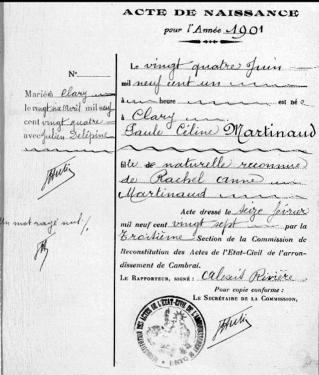 ACTE DE NAISSANCE
pour l'Année 1901
N°
Le vingt quatre Juin
mil neuf cent un
à heure est né e
à Clary
Paule Céline Martinaud
fille de naturelle reconnue
de Rachel Anne
Martinaud
Acte dressé le seize février
mil neuf cent vingt sept par la
Troisième Section de la Commission de
Reconstitution des Actes de l'Etat-Civil de l'arron-
dissement de Cambrai.
LE RAPPORTEUR, SIGNÉ : Alexis Rivière
Pour copie conforme :
LE SECRÉTAIRE DE LA COMMISSION,
Mariée à Clary
le vingt six Avril mil neuf
cent vingt quatre
avec Julien Delépine
Un mot rayé nul